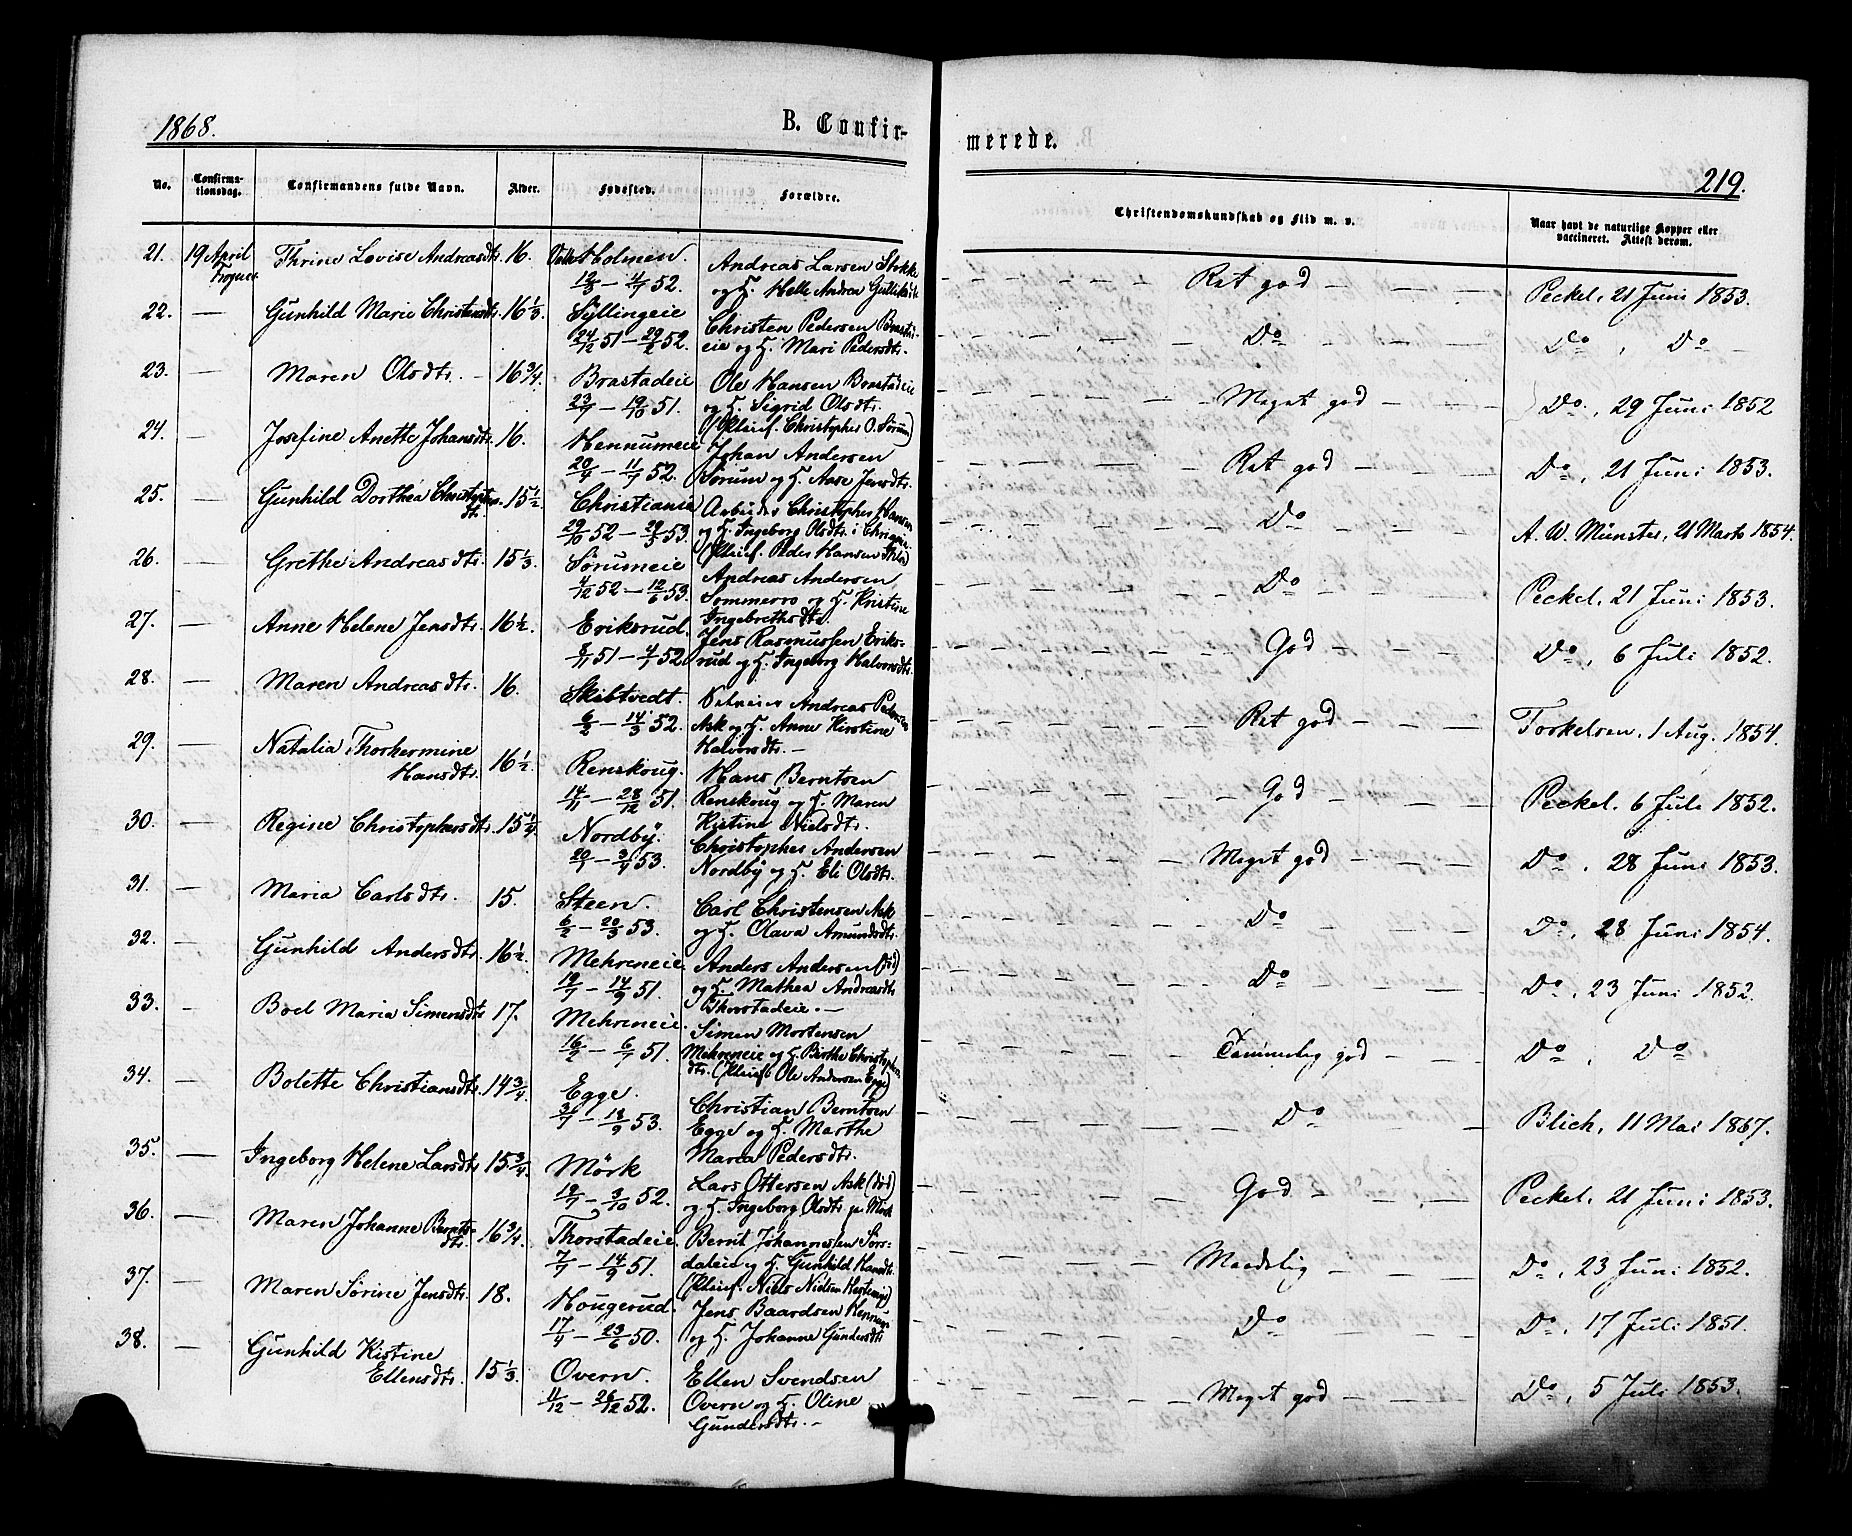 1868.
B. Confir-
merede.
219.
No.
Confirma-
tionsdag.
Confirmandens fulde Navn.
Alder.
Fødested.
Forældre.
Christendomskundskab og Flid m. v.
Naar havt de naturlige Kopper eller
vaccineret. Attest derom.
21. 19 April Thrine Lovise Andreasdtr. 16. Holmen. Andreas Larsen Stokke Ret god Peckel, 21 Juni 1853.
Frogner 12/3 – 4/7 52. og H. Helle Andrea Gulliksdtr.
22. — Gunhild Marie Christensdtr. 16 1/3. Syllingeie Christen Pedersen Brastad- Do Do, Do
24/12 51 – 29/2 52. eie og H. Mari Pedersdtr.
23. — Maren Olsdtr. 16 3/4. Brastadeie Ole Hansen Brastadeie Meget god Do, 29 Juni 1852
23/7 – 19/10 51. og H. Sigrid Olsdtr.
(Pleief. Christopher O. Sørum)
24. — Josefine Anette Johansdtr. 16. Hennumeie Johan Andersen Ret god Do, 21 Juni 1853.
20/4 – 11/7 52. Sørum og H. Aase Jensdtr.
25. — Gunhild Dorthea Christophers- 15 1/2. Christiania Arbeider Christopher Hansen Do A. W. Münster, 21 Marts 1854.
dtr. 29/10 52 – 29/3 53. og H. Ingeborg Olsdtr. i Chriania
(Pleief. Peder Hansen)
26. — Grethe Andreasdtr. 15 1/3. Sørumeie Andreas Andersen Do Peckel, 21 Juni 1853.
4/12 52 – 12/6 53. Sommerro og H. Kristine
Ingebrethsdtr.
27. — Anne Helene Jensdtr. 16 1/2. Eriksrud. Jens Rasmussen Eriks- God Do, 6 Juli 1852.
8/11 51 – 4/1 52. rud og H. Ingeborg Halvorsdtr.
28. — Maren Andreasdtr. 16. Skibtvedt. Andreas Pedersen Ret god Torkelsen, 1 Aug. 1854.
6/2 – 14/3 52. Ask og H. Anne Kirstine
Halvorsdtr. —
29. — Natalia Thorhermine 16 1/2. Renskoug. Hans Berntsen God Peckel, 6 Juli 1852.
Hansdtr. 14/11 – 28/12 51. Renskoug og H. Maren
Kistine Nielsdtr.
30. — Regine Christophersdtr. 15 1/4. Nordby. Christopher Andersen Meget god Do, 28 Juni 1853.
20/1 – 3/4 53. Nordby og H. Eli Olsdtr.
31. — Maria Carlsdtr. 15. Steen. Carl Christensen Ask Do Do, 28 Juni 1854.
6/2 – 20/3 53. og H. Olava Amundsdtr.
32. — Gunhild Andersdtr. 16 1/2. Mehreneie Anders Andersen (død) Do Do, 23 Juni 1852.
19/7 – 14/9 51. og H. Mathea Andreasdtr.
Thorstadeie. —
33. — Boel Maria Simensdtr. 17. Mehreneie. Simen Mortensen Temmelig god Do, Do
16/2 – 6/7 51. Mehreneie og H. Birthe Christophers-
dtr. (Pleief. Ole Andersen Egge)
34. — Bolette Christiansdtr. 14 3/4. Egge. Christian Berntsen Do Blich, 11 Mai 1867.
31/7 – 18/9 53. Egge og H. Marthe
Maria Pedersdtr.
35. — Ingeborg Helene Larsdtr. 15 3/4. Mörk Lars Ottersen Ask (død) God Peckel, 21 Juni 1853.
19/7 – 3/10 52. og H. Ingeborg Olsdtr. Mörk
36. — Maren Johanne Bernts- 16 3/4. Thorstadeie. Bernt Johannessen Sørs- Maadelig Do, 23 Juni 1852.
dtr. 7/7 – 14/9 51. daleie og H. Gunhild Hansdtr.
(Pleief. Niels Nielsen)
37. — Maren Sørine Jensdtr. 18. Hougerud. Jens Baardsen Hennum Do Do, 17 Juli 1851.
17/4 – 23/6 50. og H. Johanne Gundersdtr.
38. — Gunhild Kistine 15 1/3. Overn. Ellen Svendsen Meget god Do, 5 Juli 1853.
Ellensdtr. 11/12 – 26/12 52. Overn og H. Oline
Gundersdtr. —